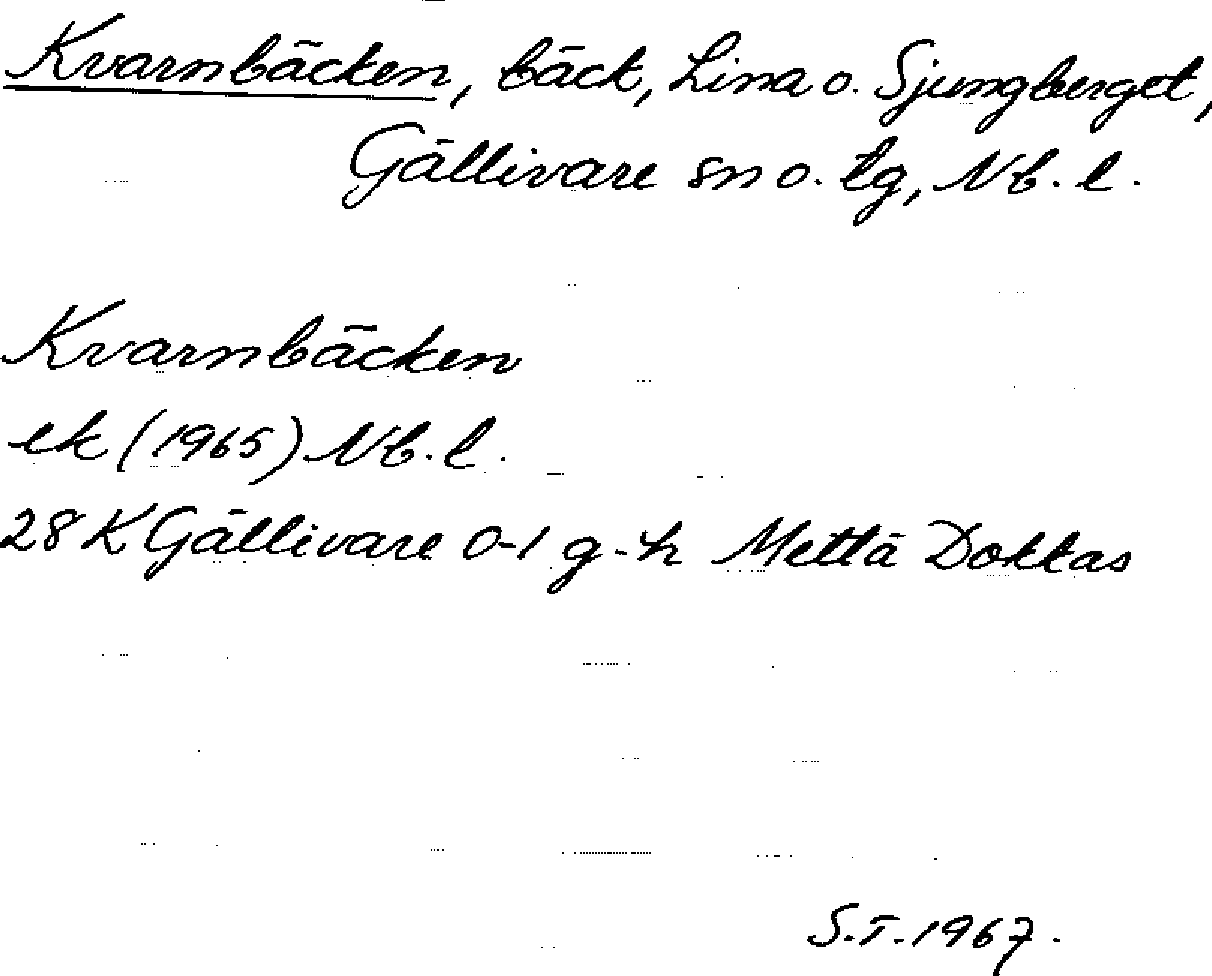 Kvarnbäcken, bäck, Lina o. Sjungberget,
Gällivare sn o. tg, Nb. l.
Kvarnbäcken
ek (1965) Nb. l.
28 K Gällivare 0-1 g-h Mettä Dokkas
S.T. 1967.